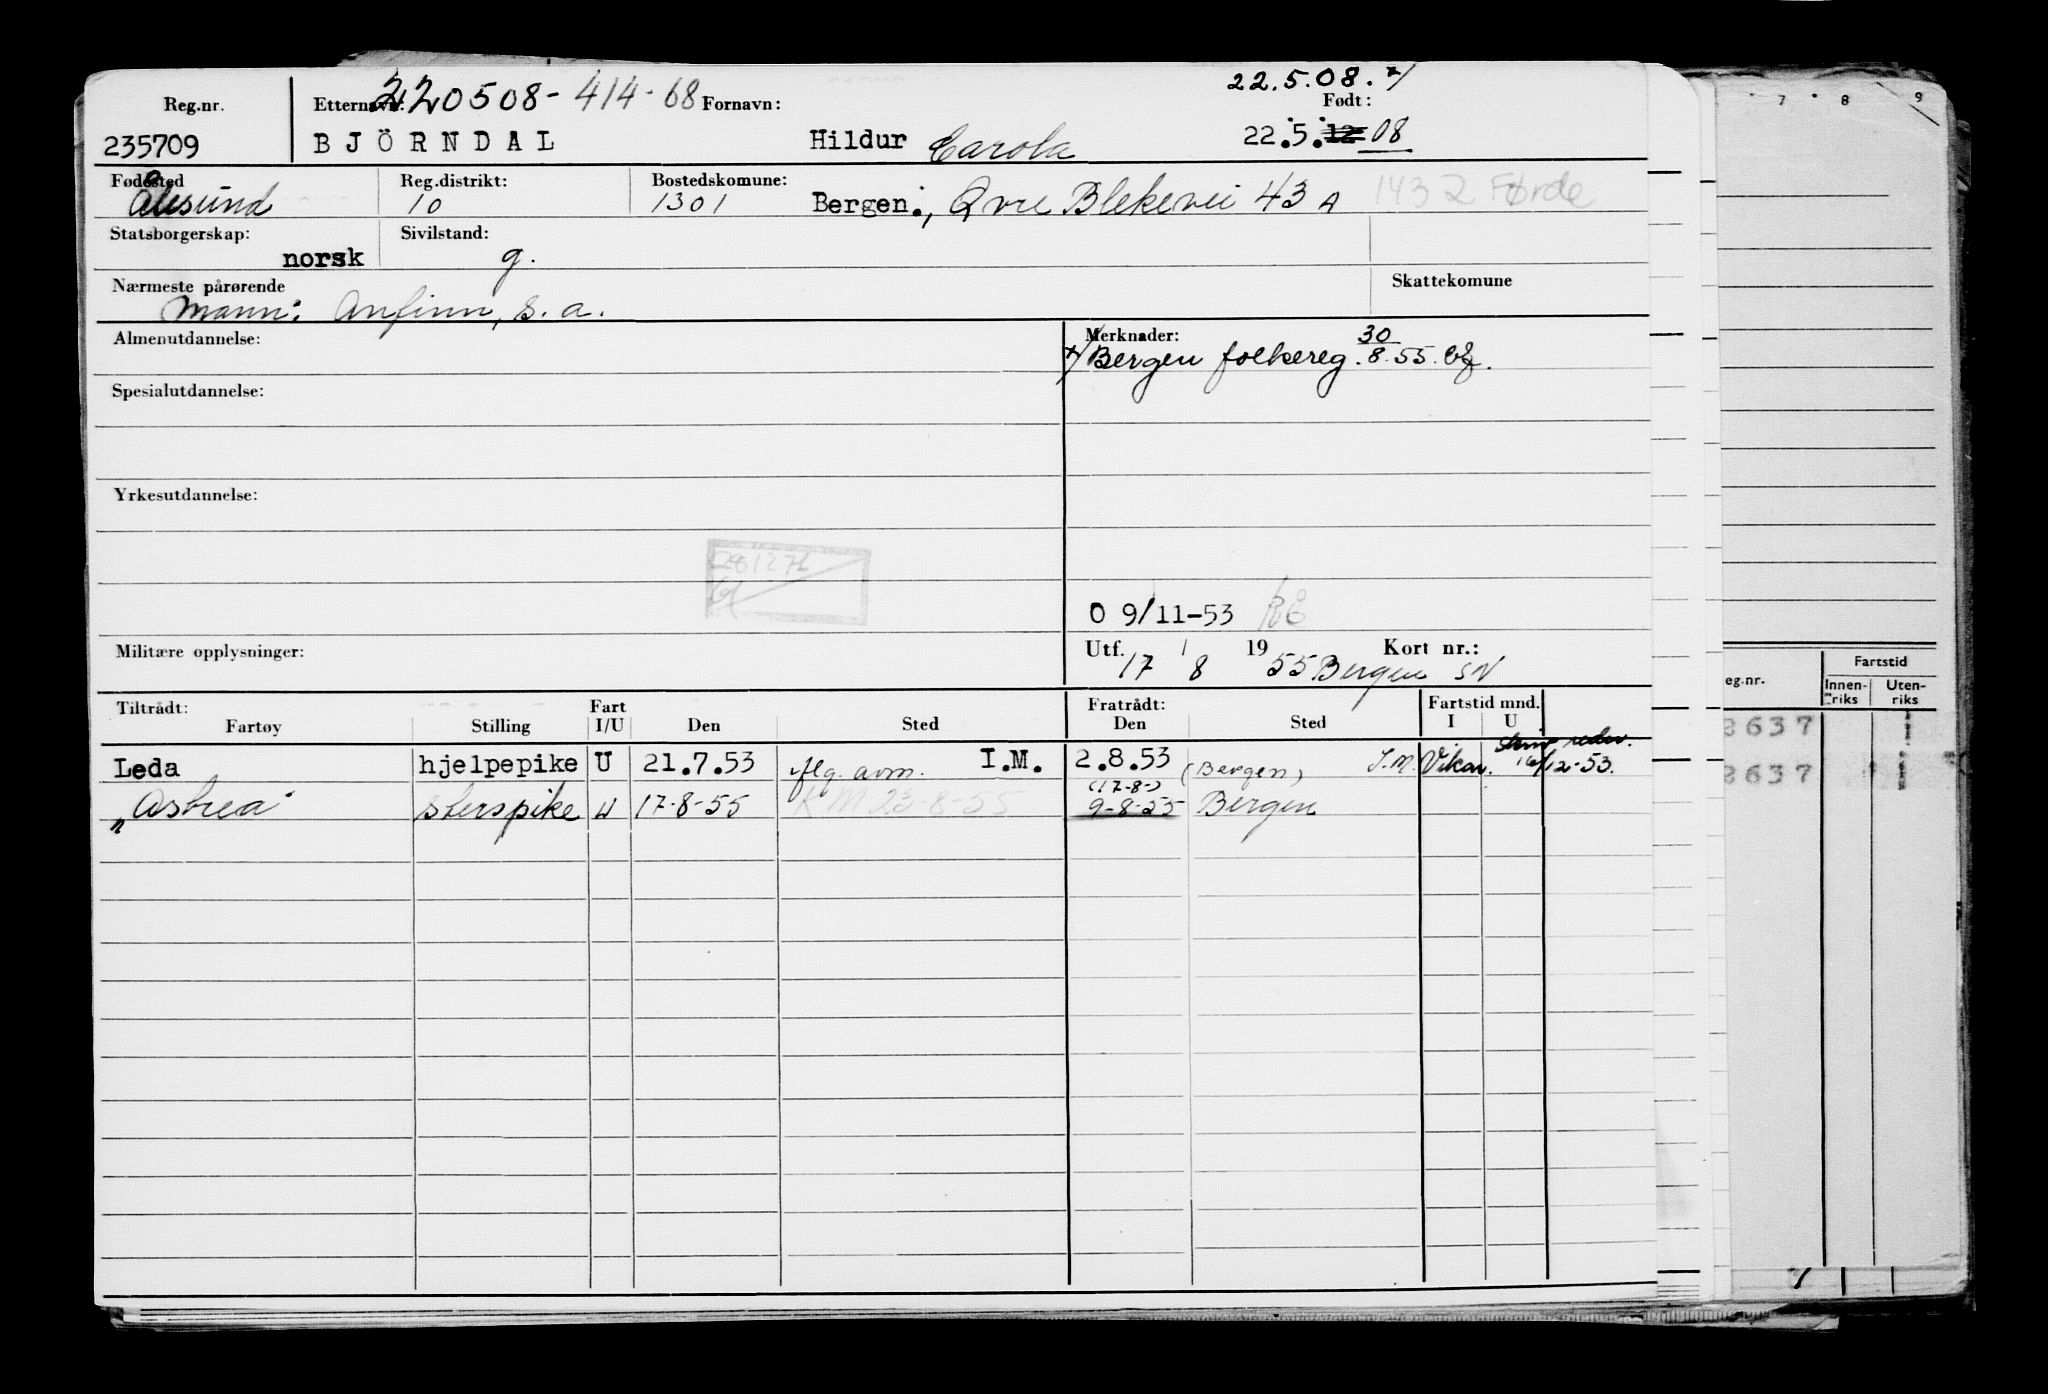 220508-414-68 22.5.08. x/
Reg.nr. Etternavn: Fornavn: Født:
235709 BJÖRNDAL Hildur Carola 22.5.12 08
Fødested Reg.distrikt: Bostedskomune:
Ålesund 10 1301 Bergen., Øvre Blekevei 43 A 1432 Førde
Statsborgerskap: Sivilstand:
norsk g.
Nærmeste pårørende Skattekomune
Mann: Anfinn, s. a.
Almenutdannelse: Merknader:
x/ Bergen folkereg. 30/8.55.
Spesialutdannelse:
Yrkesutdannelse:
281276
O 9/11-53 RE
Militære opplysninger: Utf. 17/8 1955 Bergen SN Kort nr.:
Tiltrådt: Fart Fratrådt: Fartstid mnd.
Fartøy Stilling I/U Den Sted Den Sted I U
Leda hjelpepike U 21.7.53 flg. avm. I.M. 2.8.53 (Bergen) I.M. Vikar. 16/12-53.
(17-8-)
"Astrea" U 17-8-55 KM 23-8-55 9-8-55 Bergen
7 8 9
eg.nr. Fartstid
Innen-riks Uten-riks
8637 1
8637 1